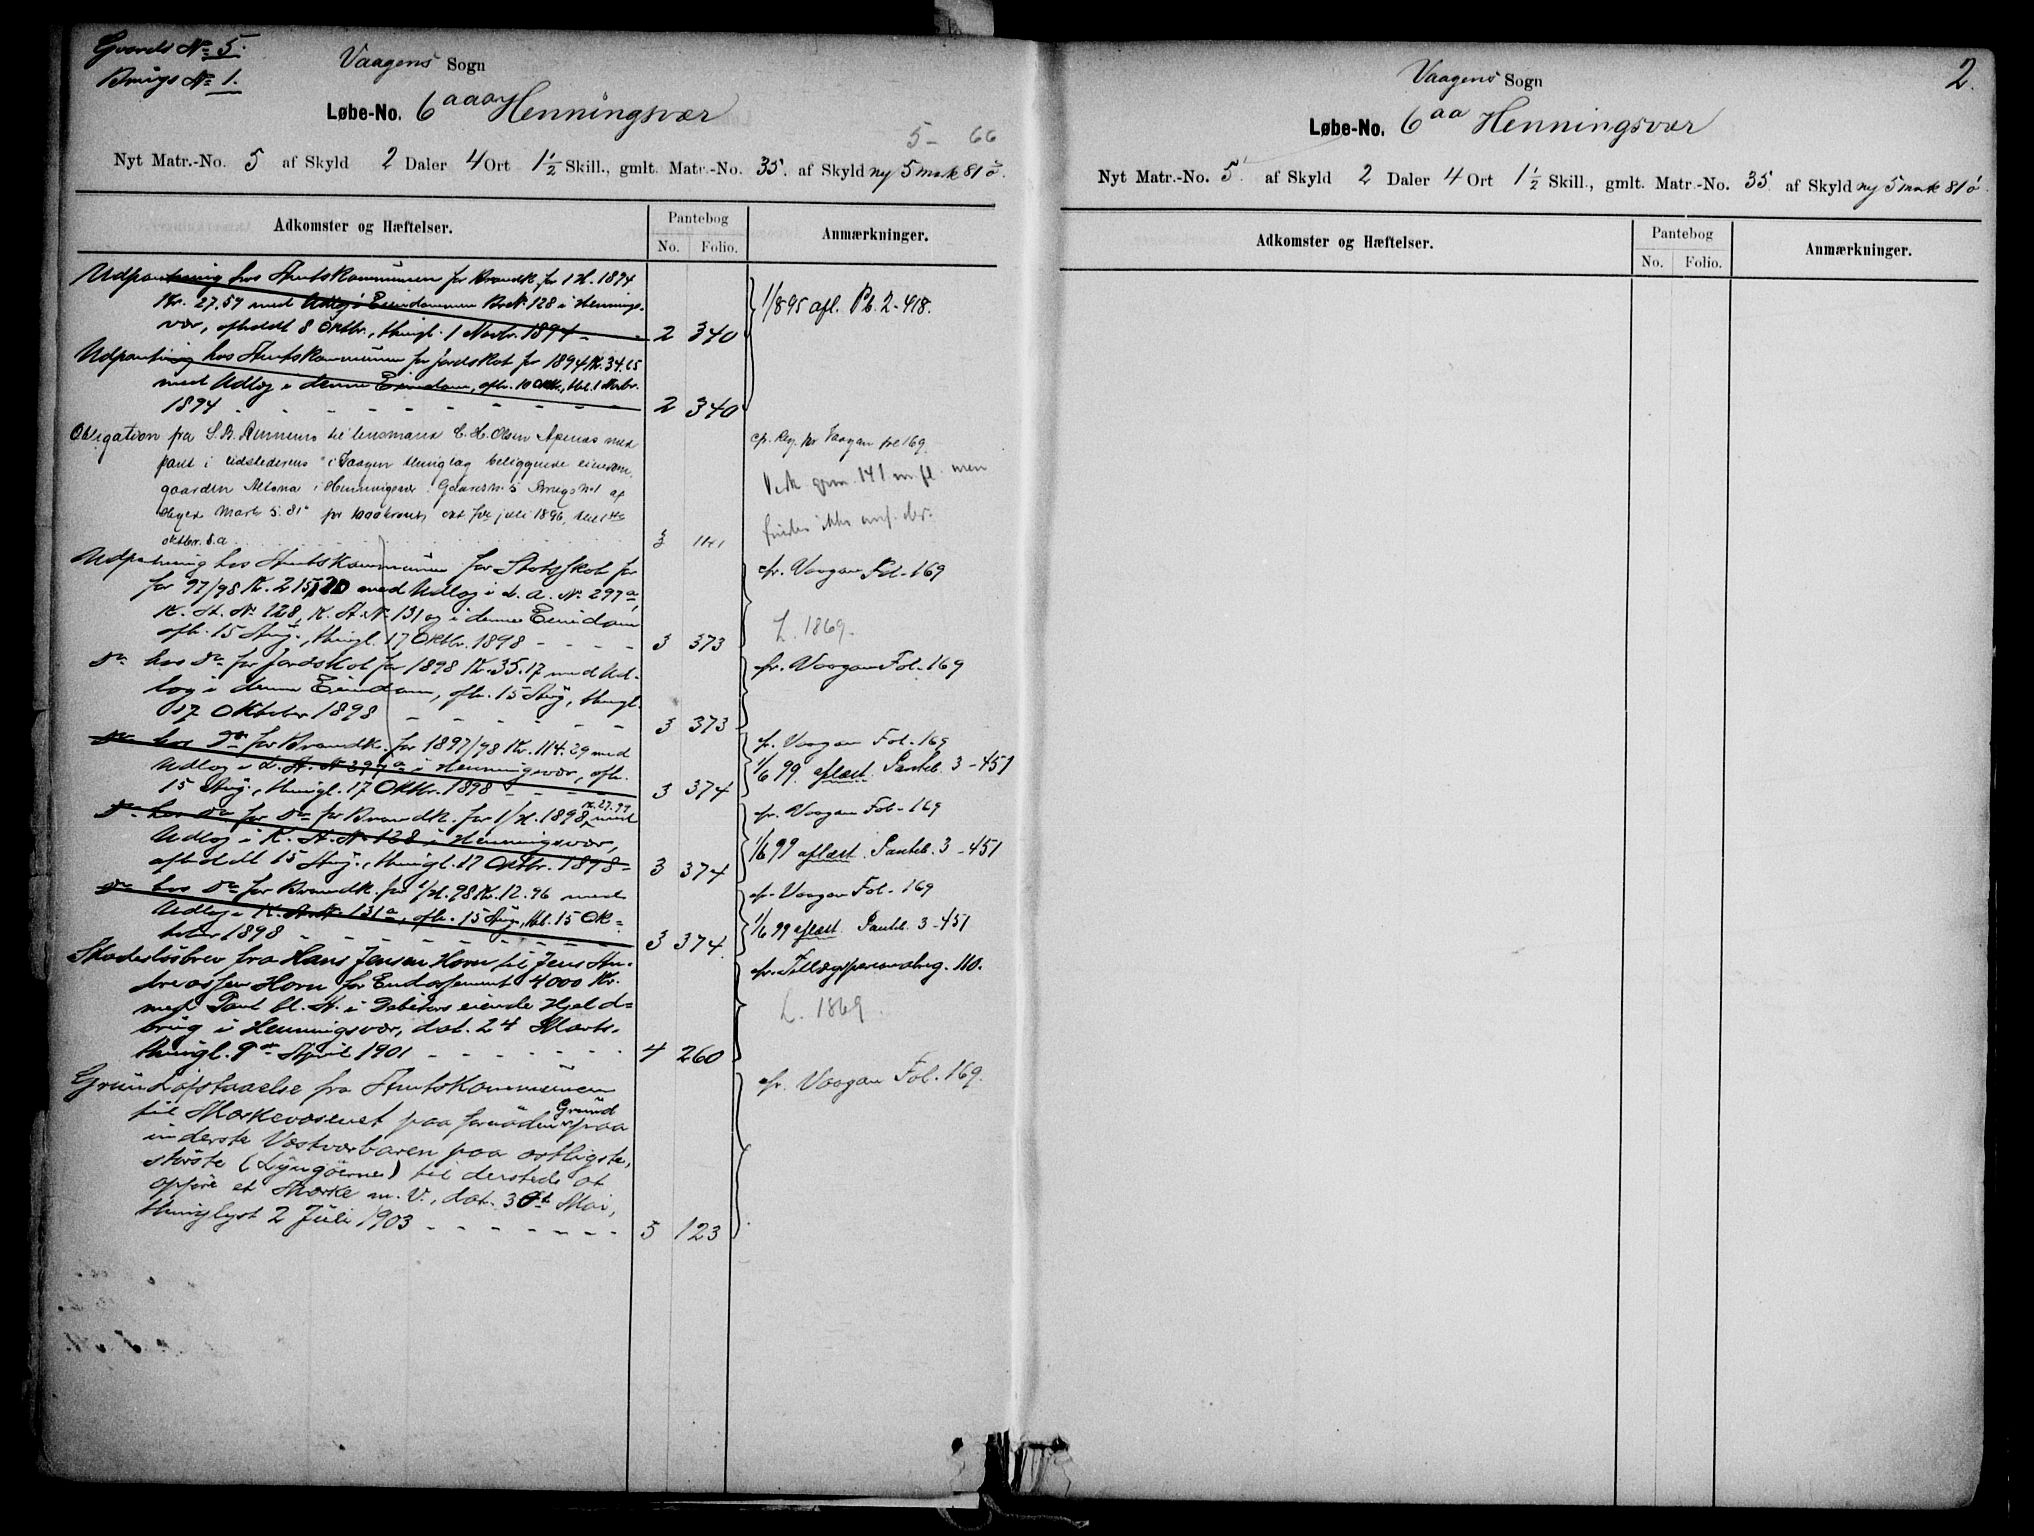 Gaards No 5.
Brugs No 1.
Vaagens Sogn
Løbe-No. 6 aaa Henningsvær
5 - 66
Nyt Matr.-No. 5 af Skyld 2 Daler 4 Ort 1½ Skill., gmlt. Matr.-No. 35. af Skyld ny 5 mark 81 ø.
Adkomster og Hæftelser.
Pantebog
No. Folio.
Anmærkninger.
Udpantning hos Amtskommunen for Brandk. for 1 H. 1894
Kr. 27.57 med Udlæg i Eiendommen Br. N. 128 i Hennings-
vær, afholdt 8 Oktbr., thingl. 1 Novbr. 1894 - 2 340
1/8 95 afl. Pb. 2-418.
Udpantning hos Amtskommunen for Jordskat for 1894 Kr. 34.65
med Udlæg i denne Eiendom, afh. 10 Oktb., thl. 1 Novbr.
1894 - - - - - - - - 2 340
Obligation fra S. B. Rinnens til lensmand C. H. Olsen Apenæs med
pant i udstederens i Vaagen thinglag beliggende eiendom
gaarden Altona i Henningsvær Gaardsn. 5 Brugsn. 1 af
skyld Mark 5.81 for kroner, dat juli 1896, thl
oktbr. s.a. 3 141
cfr. Reg. for Vaagan fol 169.
141 m fl. men
findes ikke anf. der.
Udpantning hos Amtskommunen for Skoleskat for
for 97/98 K. 215,20 med Udlæg i L. A. No. 297a,
K. A. No 128, K. A. N. 131 og i denne Eiendom
afh. 15 Aug., thingl. 17 Oktbr. 1898 - - - 3 373
cfr. Vaagan Fol. 169
L. 1869.
Do hos Do for Jordskat for 1898 Kr. 35.17 med Ud-
læg i denne Eiendom, afh. 15 Aug., thingl.
17 Oktober 1898 - - - - 3 373
cfr. Vaagan Fol. 169
Do hos Do for Brandk. for 1897/98 Kr. 114.29 med
Udlæg i L. A. N 297a i Henningsvær, afh.
15 Aug., thingl. 17 Oktbr. 1898 - - - 3 374
cfr. Vaagan Fol. 169
1/6 99. aflæst. Panteb. 3-451
Do hos Do for Do for Brandk. for 1/H. 1898 K. 27.99 med
Udlæg i K. A. N. 128 i Henningsvær,
afholdt 15 Aug., thingl. 17 Oktbr. 1898 - 3 374
cfr. Vaagan Fol. 169
1/6 99 aflæst. Panteb. 3-451
Do hos Do for Brandk. for 1/H. 98 Kr. 12.96 med
Udlæg i K. A. N. 131a, afh. 15 Aug., thl. 15 Ok-
tober 1898 - - - - - - 3 374
cfr. Vaagan Fol. 169
1/6 99 aflæst. Panteb. 3-451
Skadesløsbrev fra Hans Jensen Horn til Jens An-
dreassen Horn for Endossement 4000 Kr.
med Pant bl. A. i Debitors eiende Hjeld-
brug i Henningsvær, dat. 24 Marts,
thingl. 9de April 1901 - - - - - - 4 260
cfr. Tillægspersonalreg. 110.
L. 1869.
Grundafstaaelse fra Amtskommunen
til Mærkevæsenet paa fornøden Grund paa
inderste Vestværbaren paa østligste,
største (Lyngøerne) til dersteds at
opføre et Mærke m. V., dat. 30te Mai,
thinglyst 2 Juli 1903 - - - - - - 5 123
cfr. Vaagan Fol. 169.
2.
Vaagens Sogn
Løbe-No. 6 aa Henningsvær
Nyt Matr.-No. 5 af Skyld 2 Daler 4 Ort 1½ Skill., gmlt. Matr.-No. 35 af Skyld ny 5 mark 81 ø.
Adkomster og Hæftelser.
Pantebog
No. Folio.
Anmærkninger.